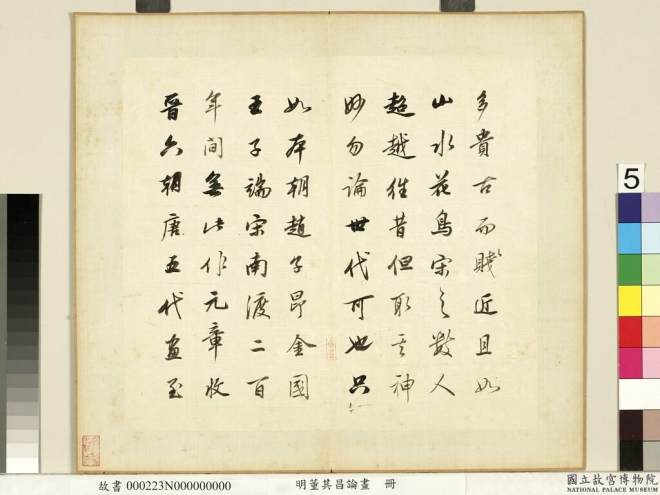 多貴古而賤近且如
山水花鳥宋之數人
超越往昔但取其神
妙勿論世代可也只
如本朝趙子昂金國
王子端宋南渡二百
年間無此作元章收
晉六朝唐五代畫至
5
故書 000223N000000000 明董其昌論畫 冊
國立故宮博物院
NATIONAL PALACE MUSEUM